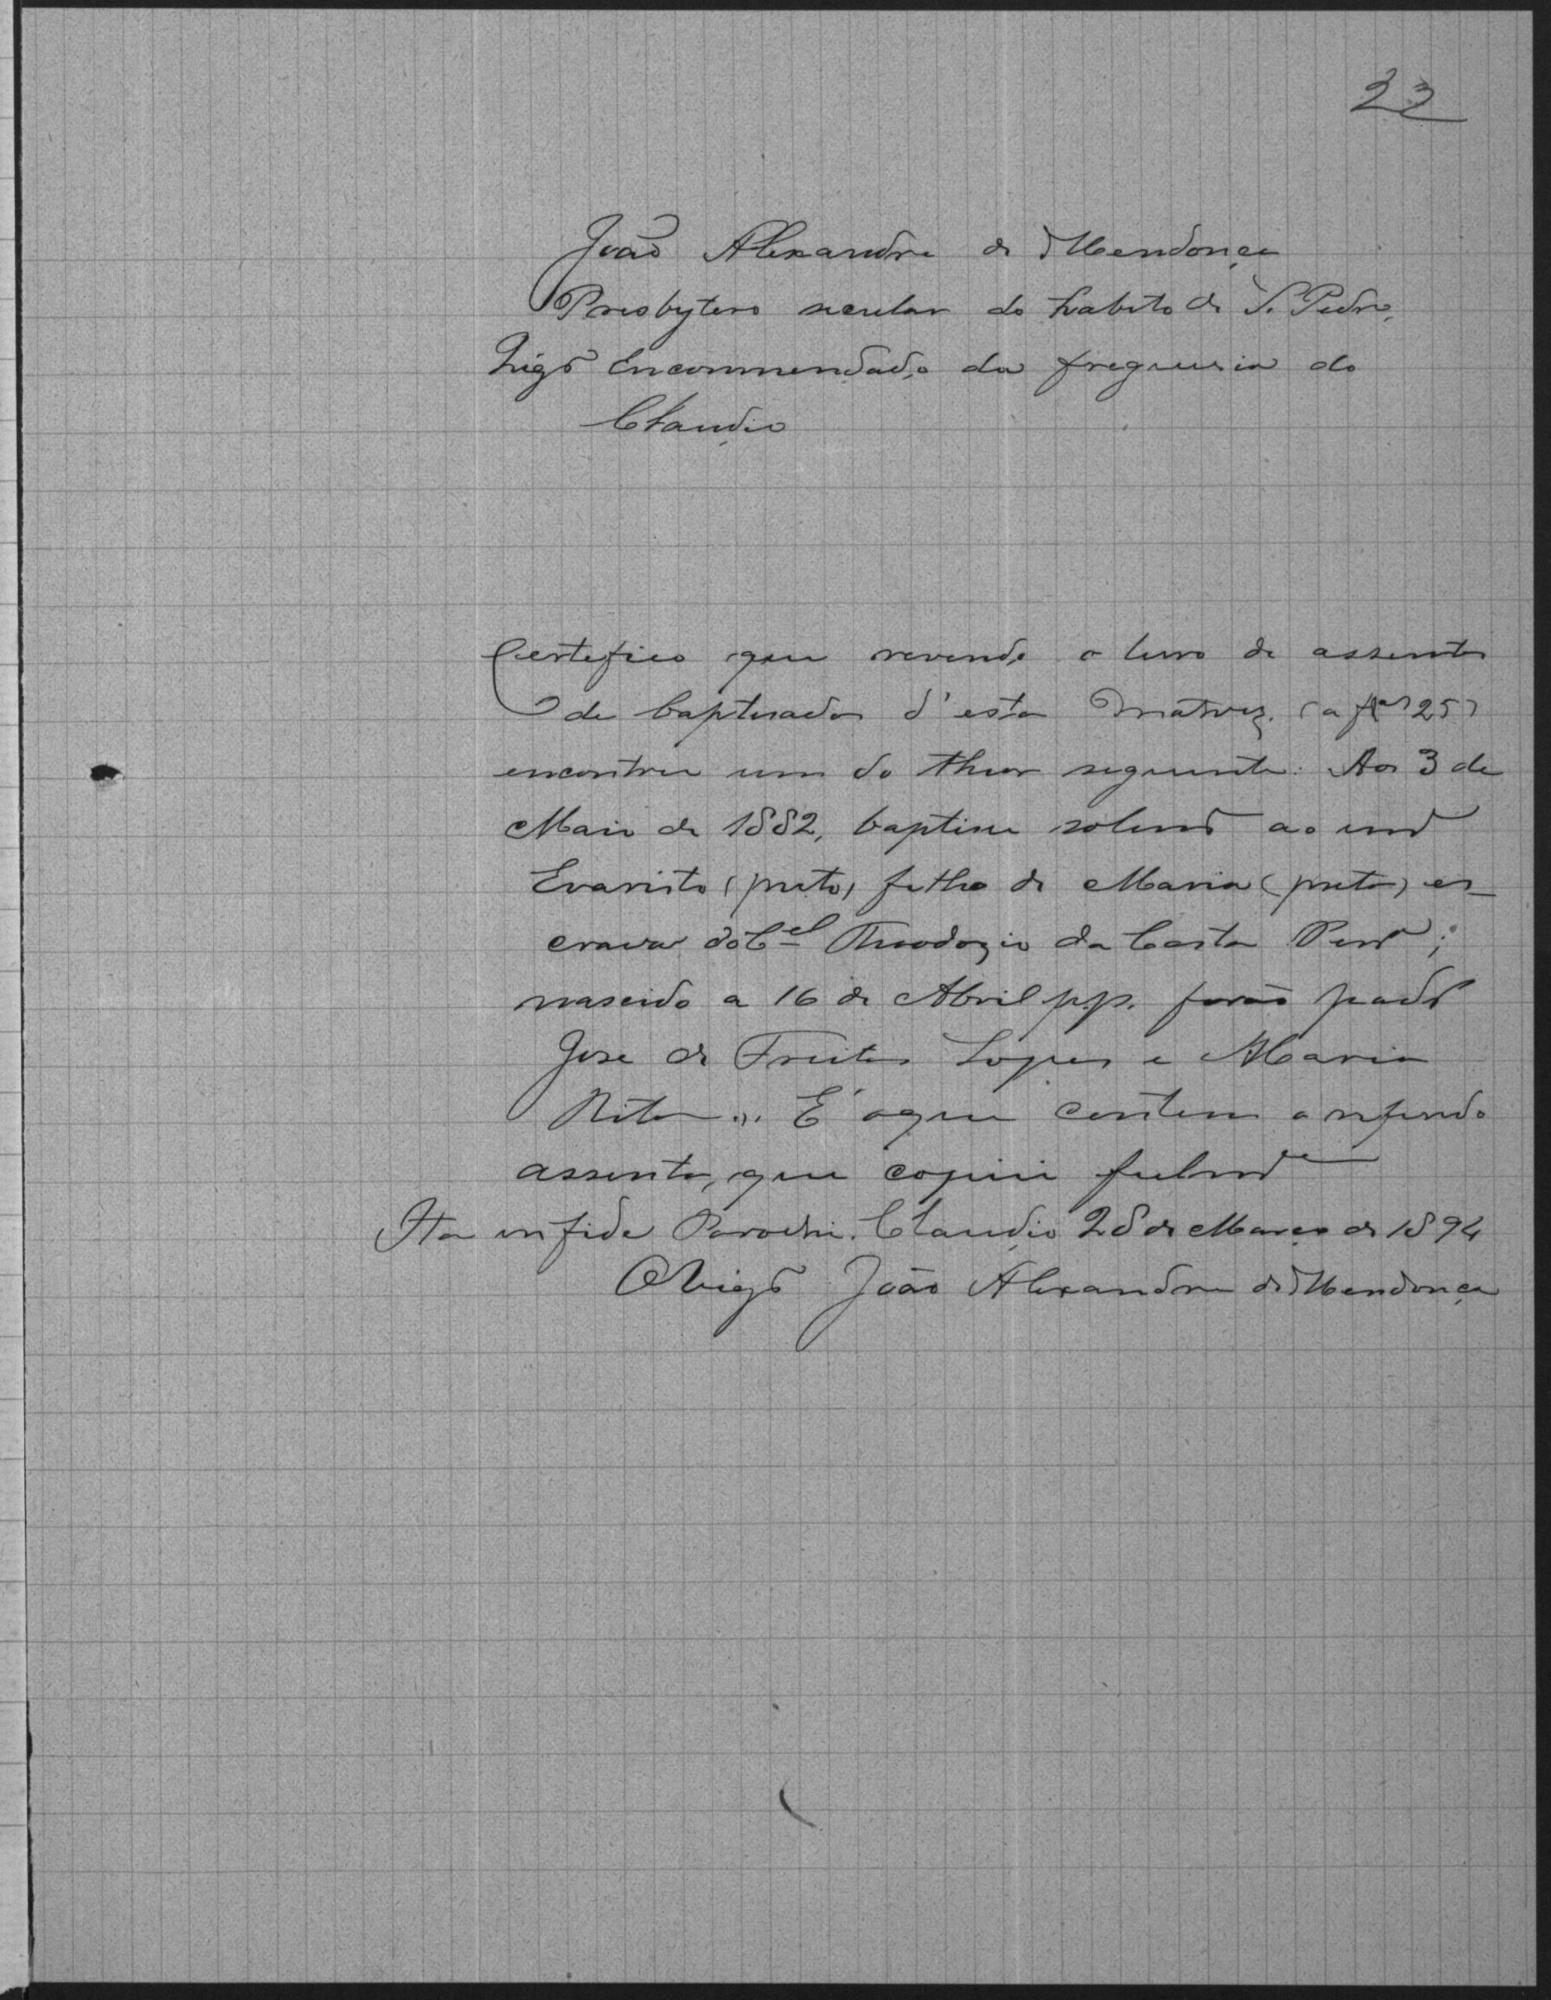 23
João Alexandre de Mendonça
Presbytero secular do habito de S. Pedro,
Vigrº Encommendado da freguesia do
Claudio
Certefico que revendo o livro de assentos
de baptisados d'esta Matriz, (a fas 25)
encontrei um do theor seguinte: Aos 3 de
Maio de 1882, baptisei solene ao innº
Evaristo (preto) filho de Maria (preta) es-
crava do Cel Theodozio da Costa Perª;
nascido a 16 de Abril p.p. forão padrs
Jose de Freitas Lopes e Maria
Rita ». É o que contem o referido
assento, que copiei fielmte
Ita in fide Parochi. Claudio 28 de Março de 1894
O Vigrº João Alexandre de Mendonça